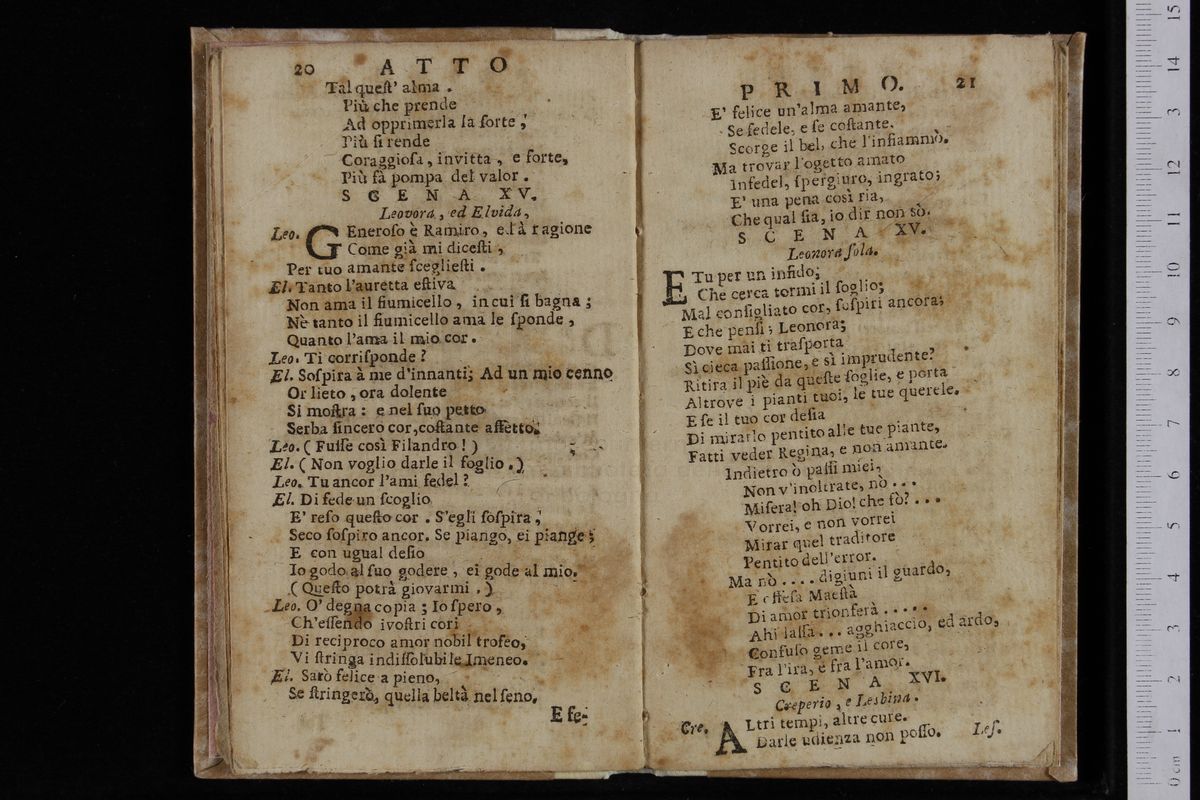 20 ATTO
Tal quest' alma .
Più che prende
Ad opprimerla la sorte ;
Più si rende
Coraggiosa , invitta , e forte,
Più fà pompa del valor .
SCENA XV.
Leovora , ed Elvida ,
Leo. GEneroso è Ramiro, ed à ragione
Come già mi dicesti ,
Per tuo amante scegliesti .
El. Tanto l'auretta estiva
Non ama il fiumicello , in cui si bagna ;
Nè tanto il fiumicello ama le sponde ,
Quanto l'ama il mio cor .
Leo. Ti corrisponde ?
El. Sospira à me d'innanti; Ad un mio cenno
Or lieto , ora dolente
Si mostra : e nel suo petto
Serba sincero cor, costante affetto.
Leo. ( Fusse così Filandro ! )
El. ( Non voglio darle il foglio . )
Leo. Tu ancor l'ami fedel ?
El. Di fede un scoglio
E' reso questo cor . S'egli sospira ,
Seco sospiro ancor. Se piango, ei piange ;
E con ugual desio
Io godo al suo godere , ei gode al mio.
( Questo potrà giovarmi . )
Leo. O' degna copia ; Io spero ,
Ch'essendo i vostri cori
Di reciproco amor nobil trofeo,
Vi stringa indissolubile Imeneo.
El. Sarò felice a pieno,
Se stringerò, quella beltà nel seno.
E se-
PRIMO. 21
E' felice un'alma amante,
Se fedele, e se costante.
Scorge il bel, che l'infiammò.
Ma trovar l'ogetto amato
Infedel, spergiuro, ingrato;
E' una pena così ria,
Che qual sia, io dir non sò.
SCENA XV.
Leonora sola.
E Tu per un infido;
Che cerca tormi il soglio;
Mal consigliato cor, sospiri ancora;
E che pensi ; Leonora;
Dove mai ti trasporta
Sì cieca passione, e sì imprudente?
Ritira il piè da queste soglie, e porta
Altrove i pianti tuoi, le tue querele.
E se il tuo cor desia
Di mirarlo pentito alle tue piante,
Fatti veder Regina, e non amante.
Indietro ò passi miei,
Non v'inoltrate, nò . . .
Misera! oh Dio! che fò? . . .
Vorrei, e non vorrei
Mirar quel traditore
Pentito dell'error.
Ma nò . . . . digiuni il guardo,
E offesa Maestà
Di amor trionferà . . . . .
Ahi lassa . . . agghiaccio, ed ardo,
Confuso geme il core,
Fra l'ira, e fra l'amor.
SCENA XVI.
Creperio , e Lesbina .
Cre. ALtri tempi, altre cure.
Darle udienza non posso.
Les.
0 cm 1 2 3 4 5 6 7 8 9 10 11 12 13 14 15